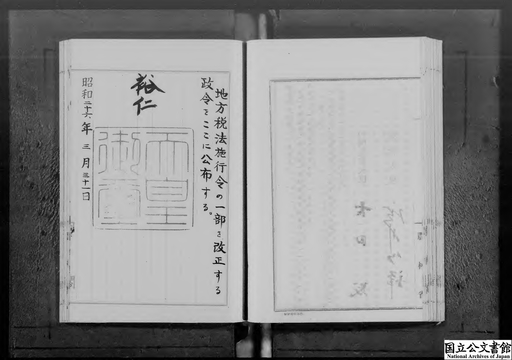 地方税法施行令の一部を改正する
政令をここに公布する。
裕仁
天皇
御璽
昭和三十六年三月三十一日
国立公文書館
National Archives of Japan